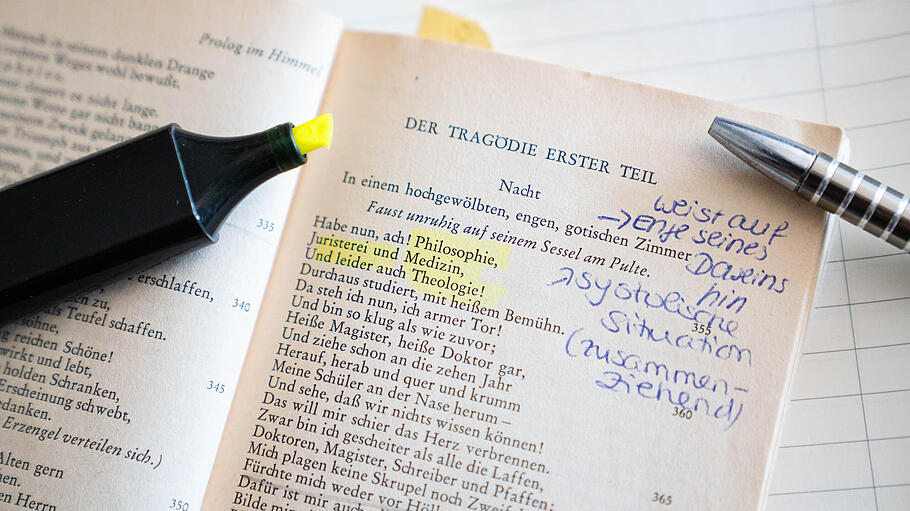 Prolog im Himmel
in seinem dunklen Drange
rechten Weges wohl bewußt.
dauert es nicht lange.
meine Wette gar nicht bange.
meinem Zweck gelange,
Triumph aus
335
erschaffen,
zu,
340
als Teufel schaffen.
reichen Schöne!
wirkt und lebt,
holden Schranken,
345
Erscheinung schwebt,
Gedanken.
Erzengel verteilen sich.)
Alten gern
350
DER TRAGÖDIE ERSTER TEIL
Nacht
In einem hochgewölbten, engen, gotischen Zimmer
Faust unruhig auf seinem Sessel am Pulte.
Habe nun, ach! Philosophie,
Juristerei und Medizin,
Und leider auch Theologie!
Durchaus studiert, mit heißem Bemühn.
Da steh ich nun, ich armer Tor!
355
Und bin so klug als wie zuvor;
Heiße Magister, heiße Doktor gar,
Und ziehe schon an die zehen Jahr
Herauf, herab und quer und krumm
Meine Schüler an der Nase herum –
360
Und sehe, daß wir nichts wissen können!
Das will mir schier das Herz verbrennen.
Zwar bin ich gescheiter als alle die Laffen,
Doktoren, Magister, Schreiber und Pfaffen;
Mich plagen keine Skrupel noch Zweifel,
365
Fürchte mich weder vor Hölle
Dafür ist mir auch
Bilde mir
weist auf
→ Enge seines
Daseins
hin
→ systolische
Situation
(zusammen-
ziehend)